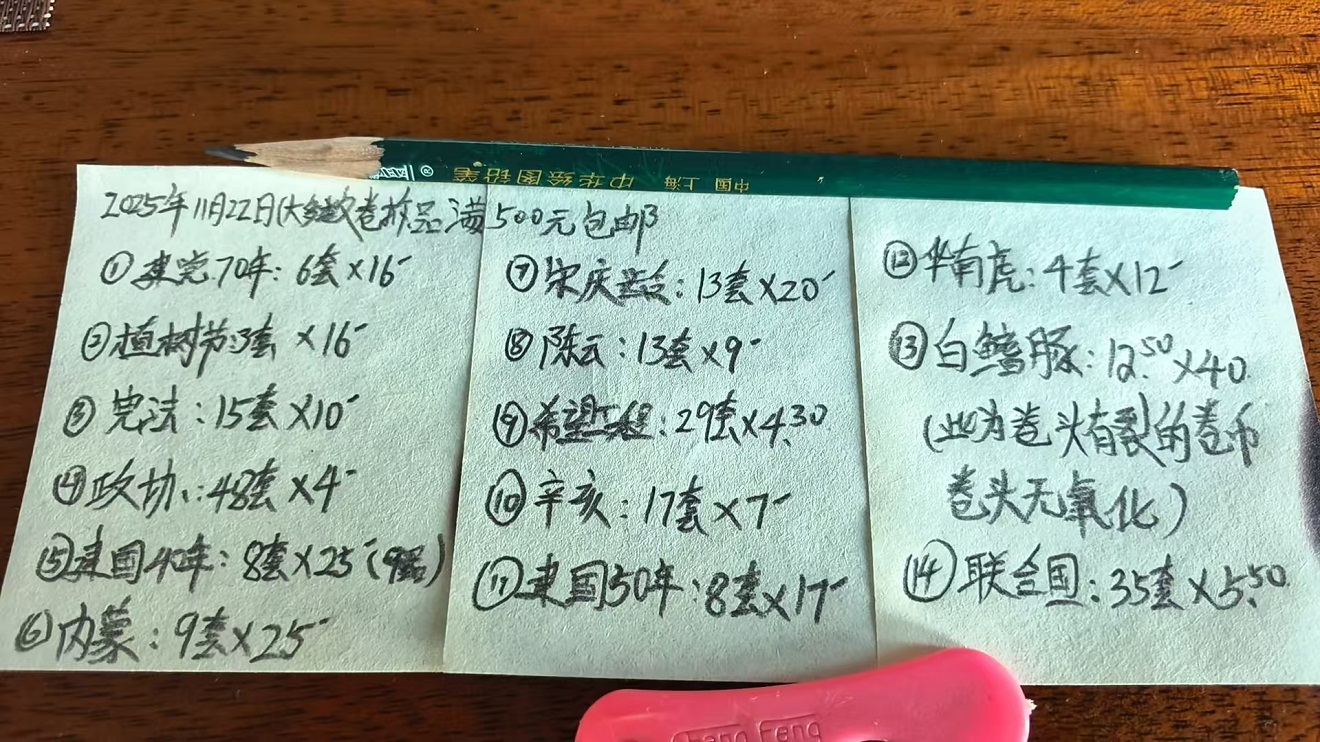 中国 上海 中华绘图铅笔
®
2025年11月22日(大多数卷拆品满500元包邮
①建党70年：6套×16-
②植树节：3套 ×16-
③宪法：15套×10-
④政协：48套×4-
⑤建国40年：8套×25-(9品)
⑥内蒙：9套×25-
⑦宋庆龄：13套×20-
⑧陈云：13套×9-
⑨希望工程：29套×4.30
⑩辛亥：17套×7-
⑪建国50年：8套×17-
⑫华南虎：4套×12-
⑬白鳍豚：12.50×40
(此为卷头有裂的卷币
卷头无氧化)
⑭联合国：35套×5.50
Chang Feng